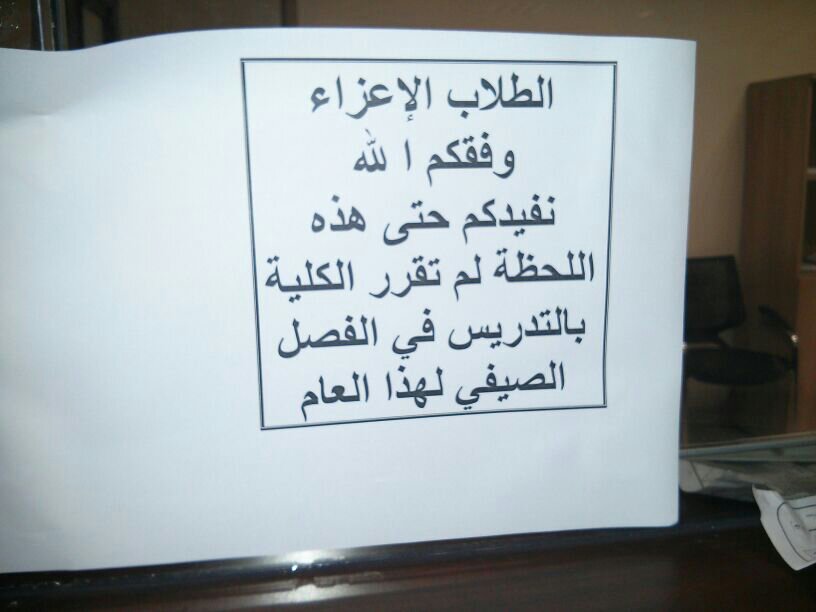 الطلاب الإعزاء
وفقكم ا لله
نفيدكم حتى هذه
اللحظة لم تقرر الكلية
بالتدريس في الفصل
الصيفي لهذا العام